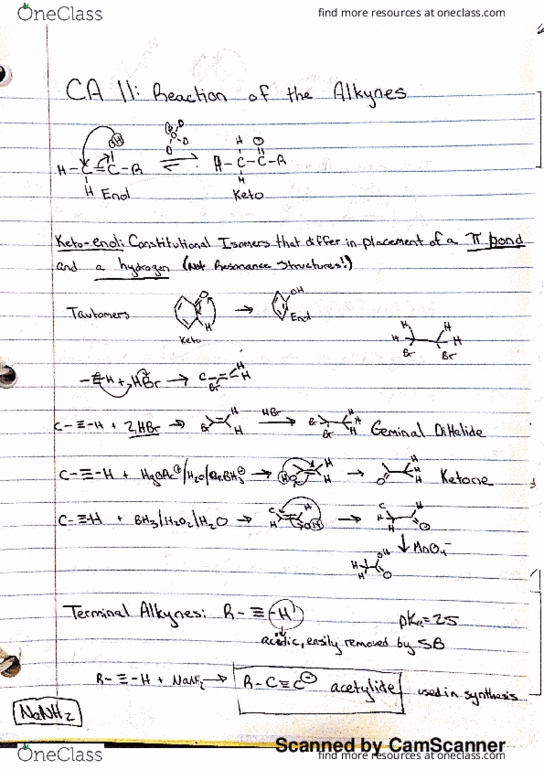 OneClass
find more resources at oneclass.com
CA 11: Reaction of the Alkynes
H O
H-C=C-R ⇌ H-C-C-R
H Enol H Keto
Keto-enol: Constitutional Isomers that differ in placement of a π bond
and a hydrogen (Not Resonance Structures!)
Tautomers → OH
Keto Enol
H H
H H
Br Br
-≡-H + HBr → C
Br H
C-≡-H + 2HBr → Br H HBr → Br H Geminal DiHalide
C-≡-H + /H2O/ → HO H → O H Ketone
C-≡-H + BH3/H2O2/H2O → OH → H O
↓ MnO4-
OH
Terminal Alkynes: R-≡-H pKa=25
acidic, easily removed by SB
R-≡-H + → R-C≡C⊖ acetylide used in synthesis
NaNH2
Scanned by CamScanner
OneClass
find more resources at oneclass.com